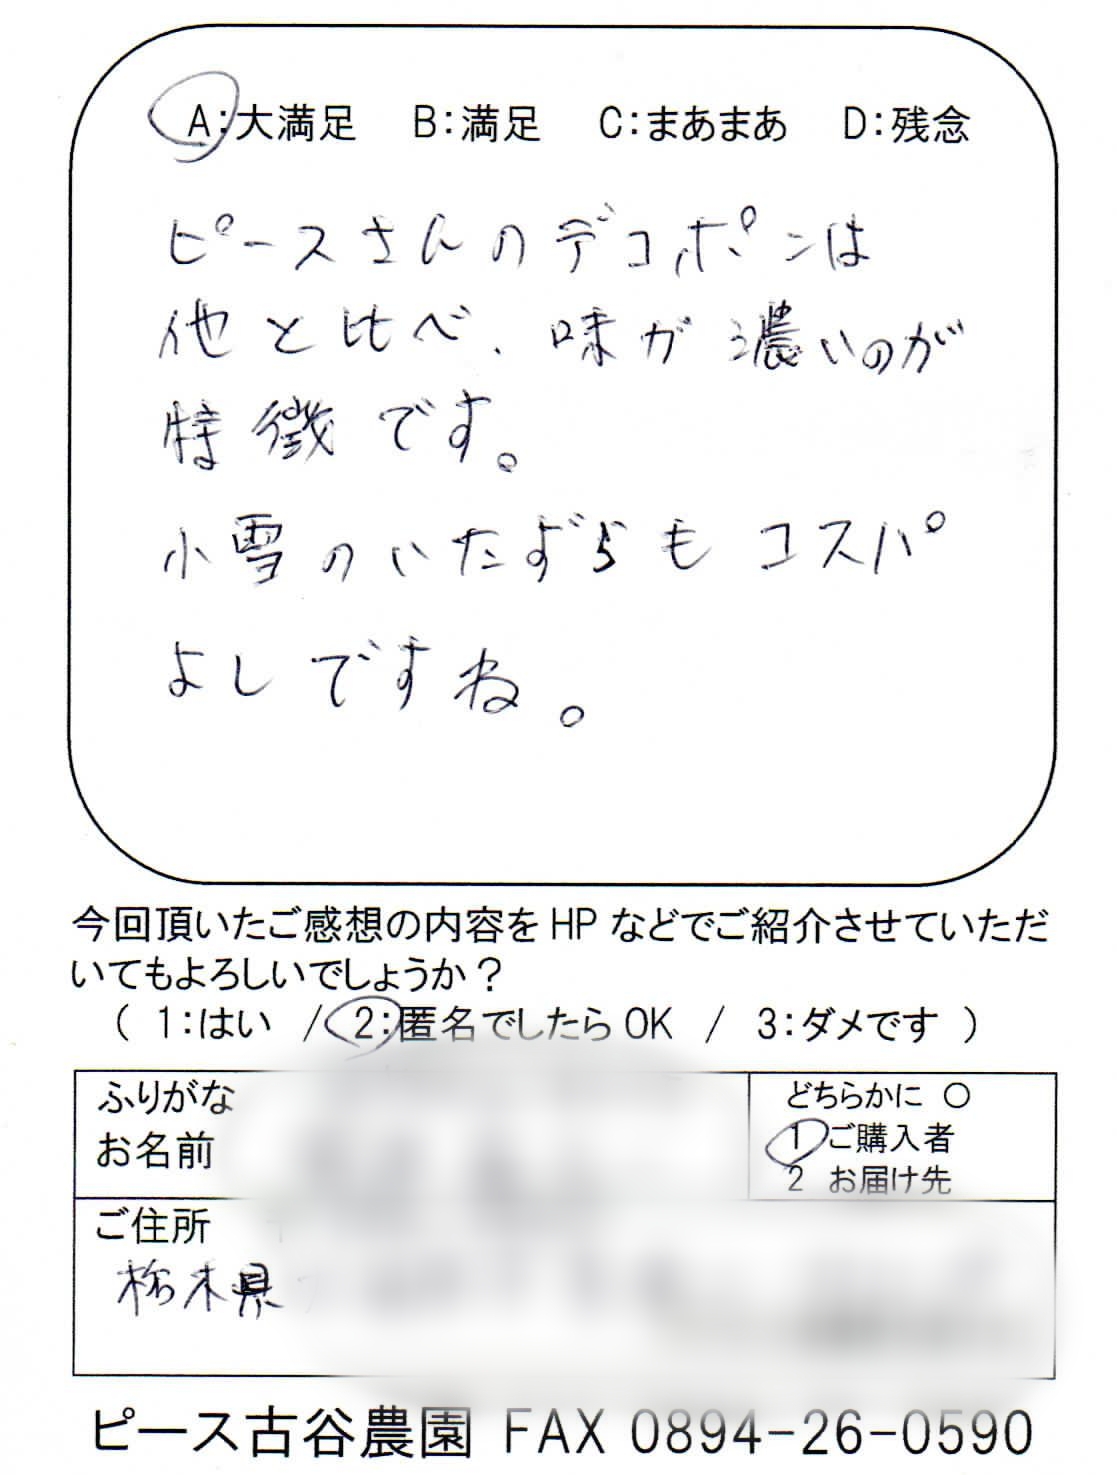 A:大満足 B:満足 C:まあまあ D:残念
ピースさんのデコポンは
他と比べ、味が濃いのが
特徴です。
小雪のいたずらもコスパ
よしですね。
今回頂いたご感想の内容をHPなどでご紹介させていただ
いてもよろしいでしょうか?
( 1:はい / 2:匿名でしたらOK / 3:ダメです )
ふりがな
お名前
どちらかに ○
1 ご購入者
2 お届け先
ご住所
栃木県
ピース古谷農園 FAX 0894-26-0590